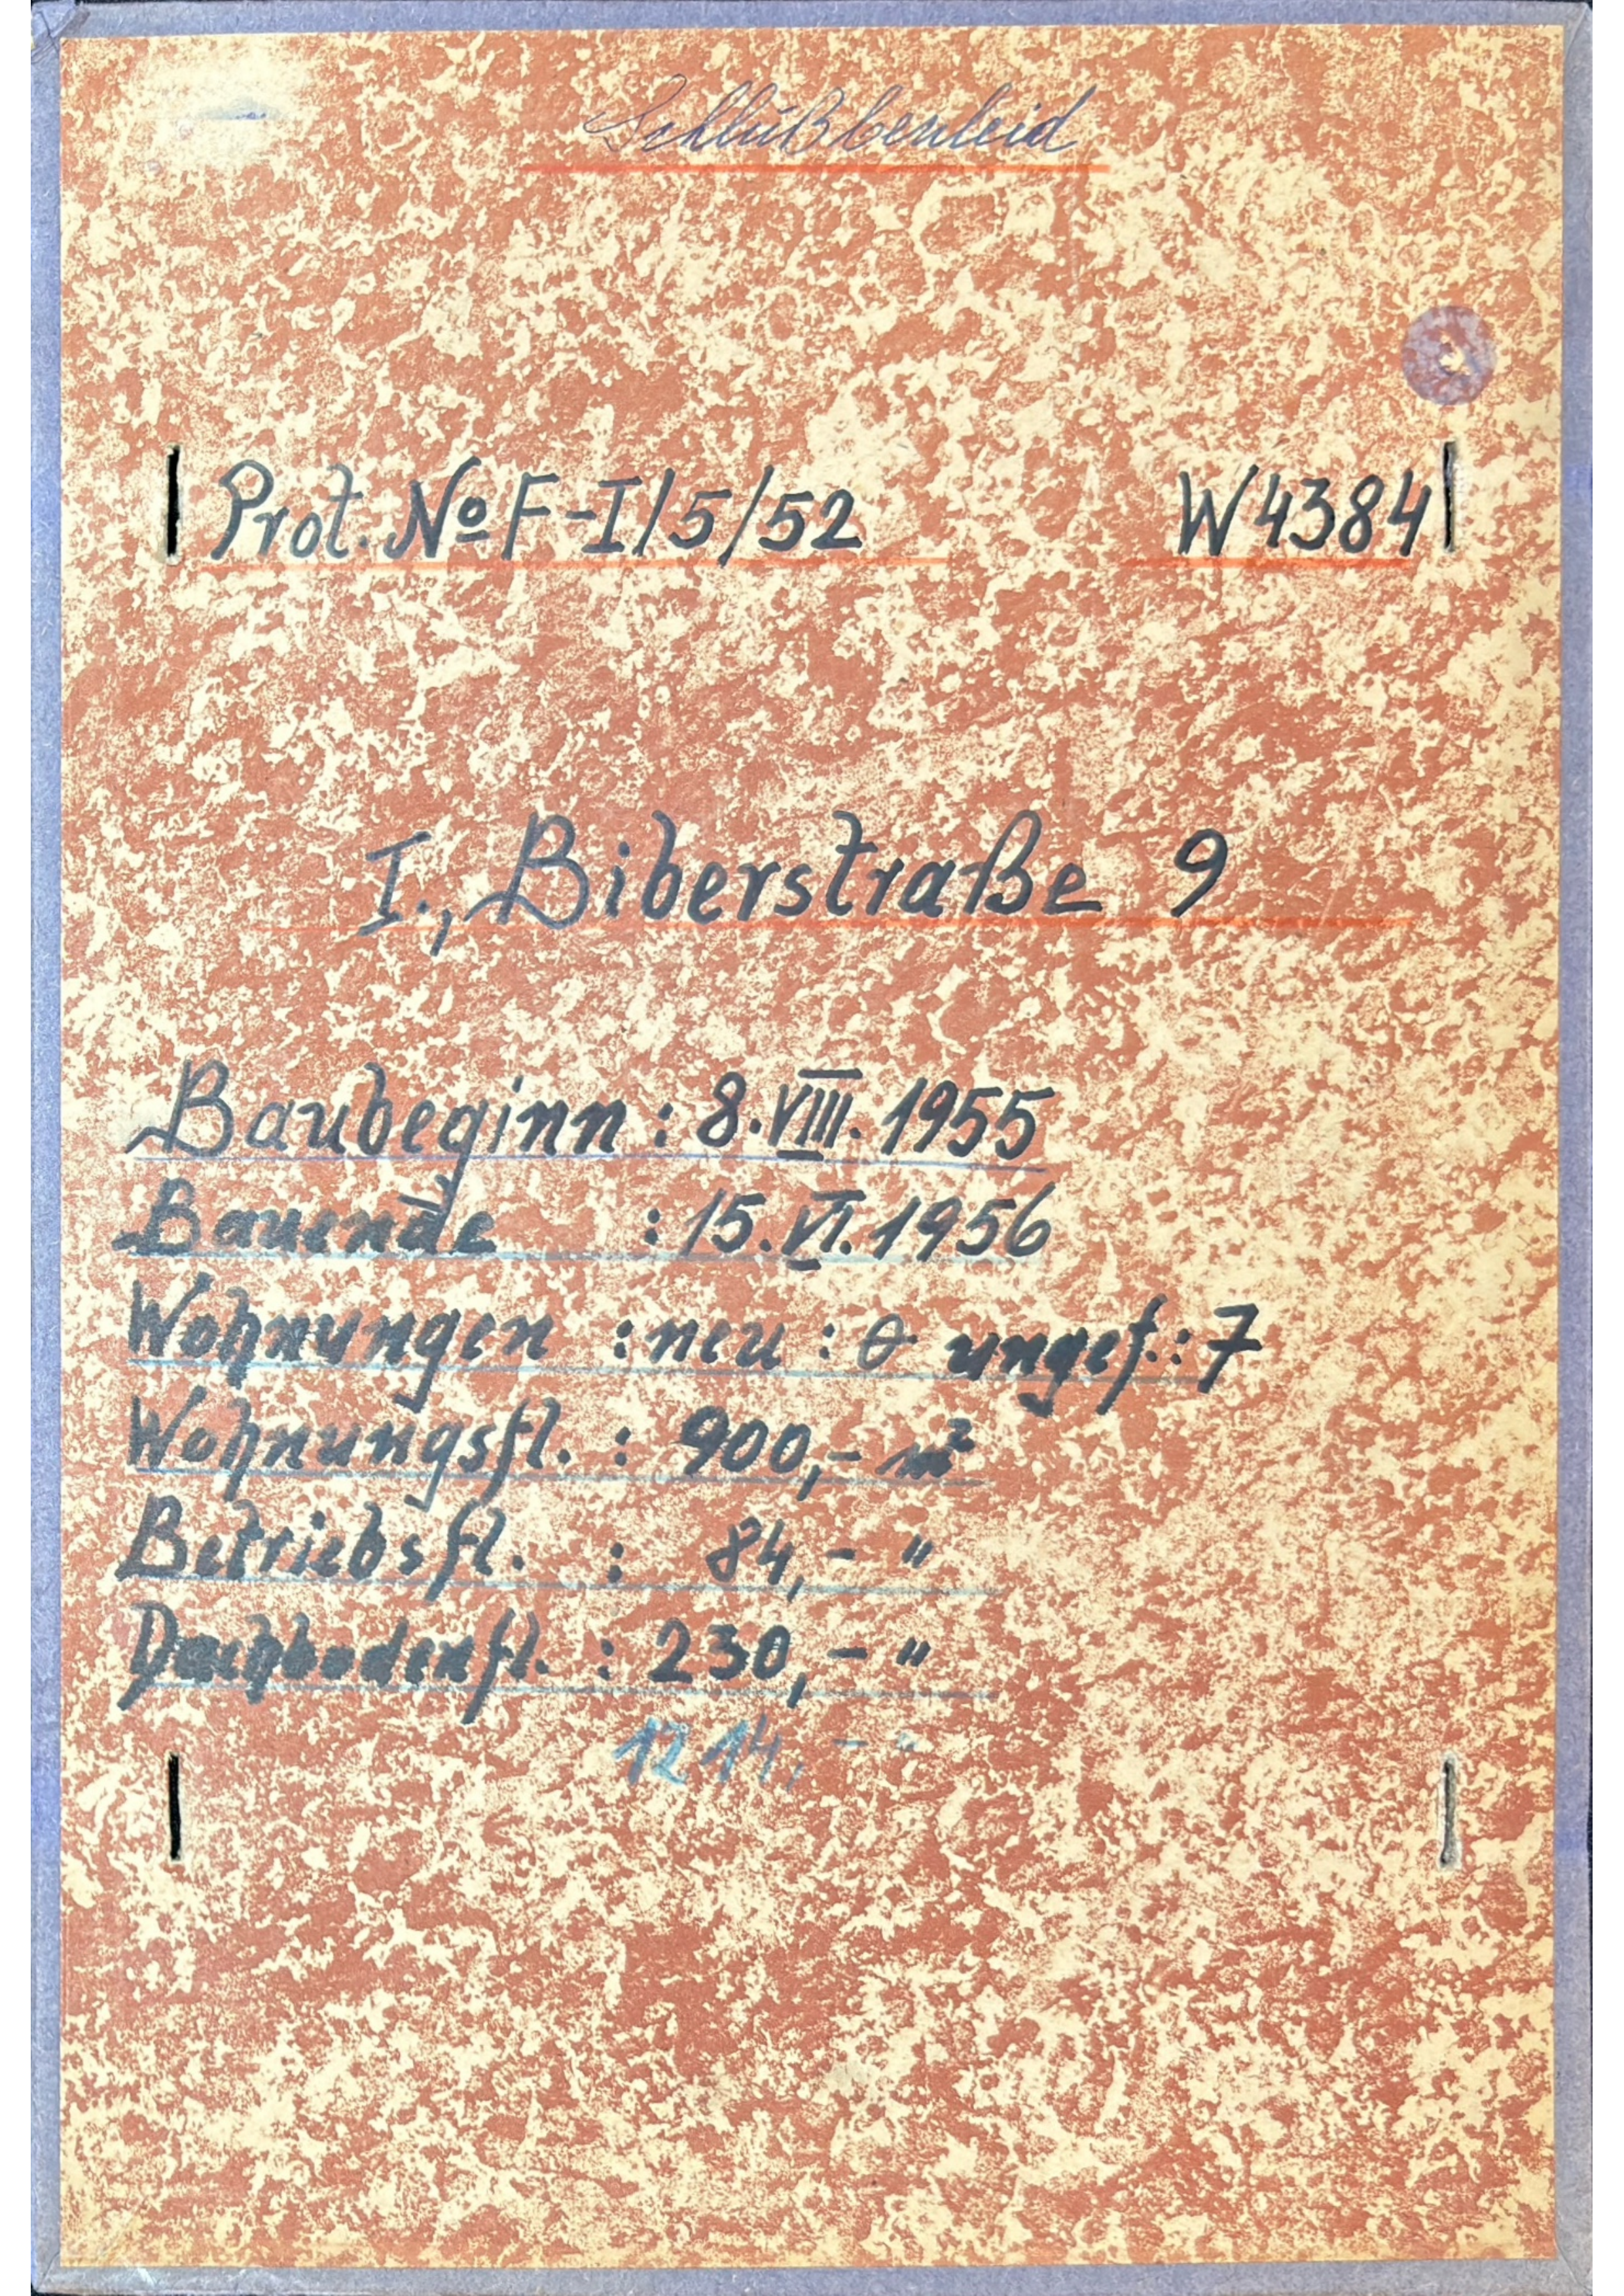 Schlußbenleid
Prot. No F-I/5/52 W4384
I., Biberstraße 9
Baubeginn : 8.VIII.1955
Bauende : 15.VI.1956
Wohnungen : neu : 0 ungef.: 7
Wohnungsfl. : 900,- m²
Betriebsfl. : 84,- "
Dachbodenfl. : 230,- "
1214,- "